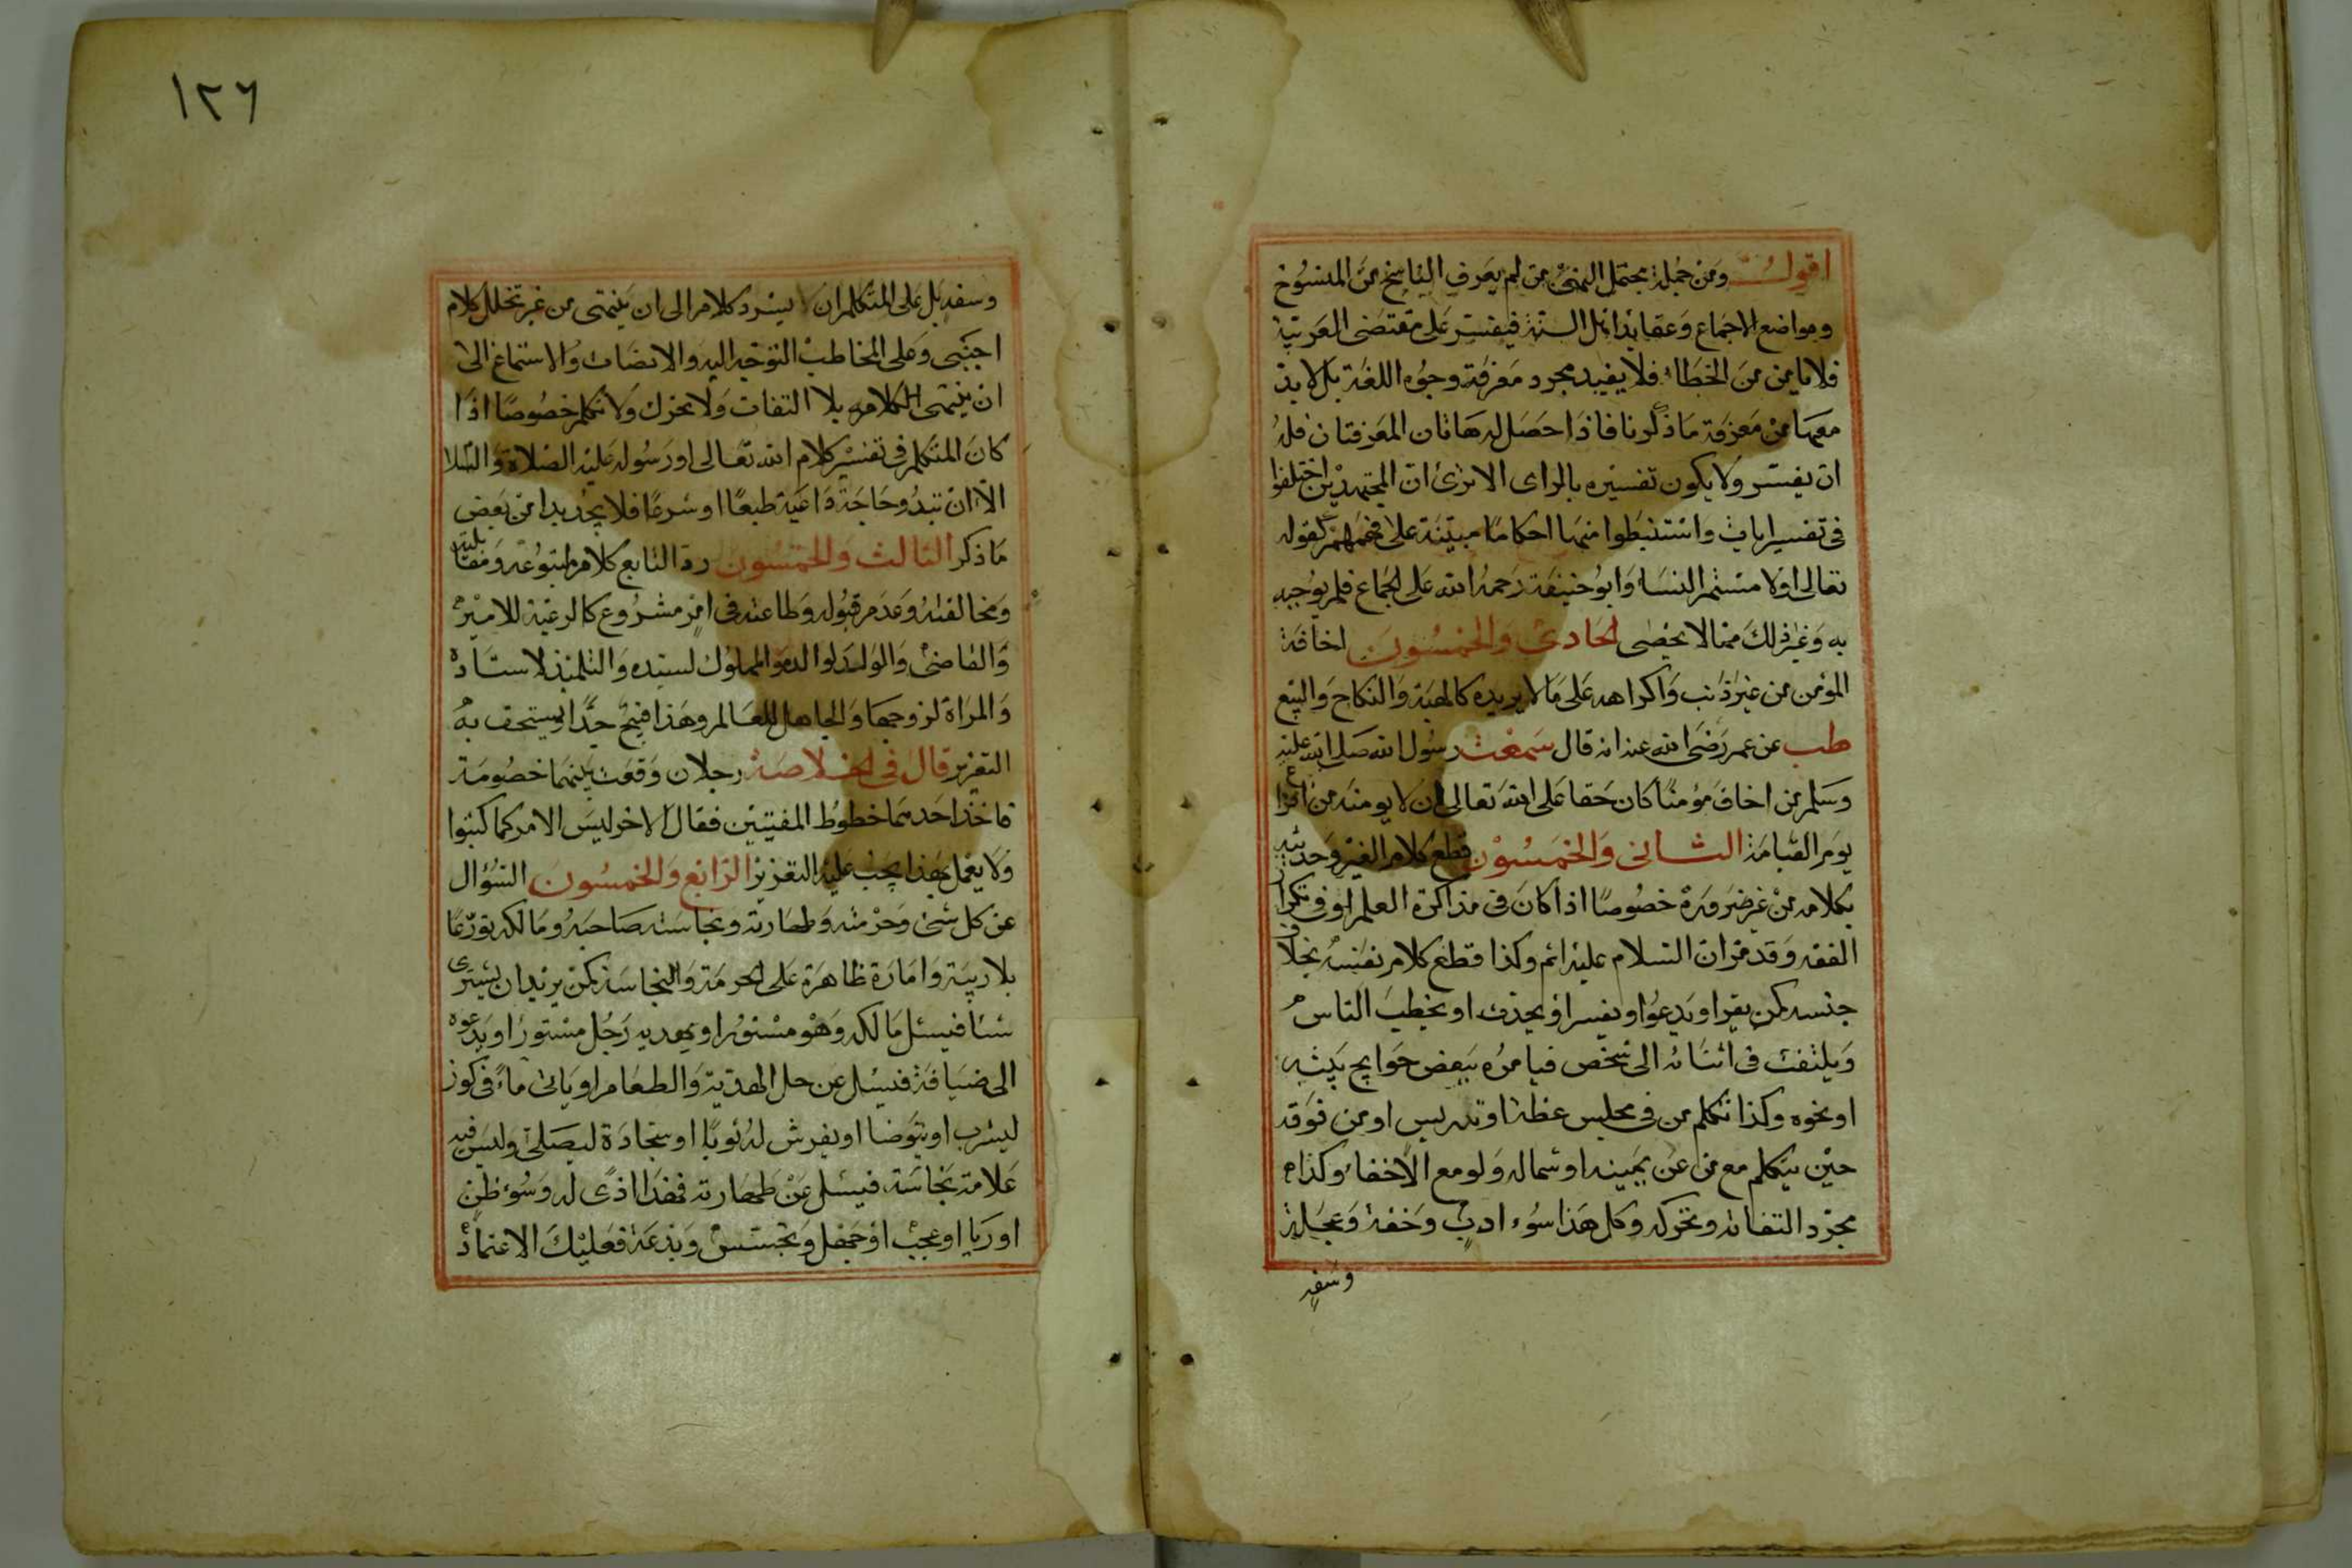 اقول ومن جملة محتمل النهي من لم يعرف الناسخ من المنسوخ
ومواضع الاجماع وعقايد اهل السنة فيفسر على مقتضى العربية
فلا يامن من الخطاء فلا يفيد مجرد معرفة وجوه اللغة بل لابد
معها من معرفة ما ذكرنا فاذا حصل له هاتان المعرفتان فله
ان يفسر ولا يكون تفسيره بالراى الا ترى ان المجتهدين اختلفوا
فى تفسير ايات واستنبطوا منها احكاما مبتنية على فهمهم كقوله
تعالى اولامستم النسا وابو حنيفة رحمه الله على الجماع فلم يوجبه
به وغير ذلك مما لا يحصى الحادى والخمسون اخافة
المؤمن من غير ذنب واكراهه على ما لا يريده كالهبة والنكاح والبيع
طب عن عمر رضى الله عنه انه قال سمعت رسول الله صلى الله عليه
وسلم من اخاف مؤمنا كان حقا على الله تعالى ان لا يومنه من افزاع
يوم القيامة الثانى والخمسون قطع كلام الغير وحديثه
بكلامه من غير ضرورة خصوصا اذا كان فى مذاكرة العلم او فى تكرار
الفقه وقد مر ان السلام عليه اثم وكذا قطع كلام نفسه بخلاف
جنسه كمن يقرا او يدعوا او يفسر او يحدث او يخطب الناس
ويلتفت فى اثنائه الى شخص فيامره ببعض حوايج بيته
او نحوه وكذا تكلم من فى مجلس عظة او تدريس او من فوقه
حين يتكلم مع من عن يمينه او شماله ولو مع الاخفاء وكذا
مجرد التفاته وتحركه وكل هذا سوء ادب وخفة وعجلة
وسفه
١٢٦
وسفه بل على المتكلم ان يسرد كلامه الى ان ينتهى من غير تخلل كلام
اجنبى وعلى المخاطب التوجه اليه والانصات والاستماع الى
ان ينتهى كلامه بلا التفات ولا تحرك ولا تكلم خصوصا اذا
كان المتكلم فى تفسير كلام الله تعالى او رسوله عليه الصلاة والسلا
الا ان تبدو حاجة داعية طبعا او شرعا فلا يجد بدا من بعض
ما ذكر الثالث والخمسون رد التابع كلام متبوعه ومقابلته
ومخالفته وعدم قبوله وطاعته فى امر مشروع كالرعية للامير
والقاضى والولد لوالده والمملوك لسيده والتلميذ لاستاده
والمراة لزوجها والجاهل للعالم وهذا قبيح جدا يستحق به
التعزير قال فى الخلاصة رجلان وقعت بينهما خصومة
فاخذ احدهما خطوط المفتيين فقال الاخر ليس الامر كما كتبوا
ولا يعمل بهذا يجب عليه التعزير الرابع والخمسون السؤال
عن كل شئ وحرمته وطهارته ونجاسته صاحبه ومالكه تورعا
بلا ريبة وامارة ظاهرة على الحرمة والنجاسة كمن يريد ان يشترى
شئا فيسئل مالكه وهو مستور او يهديه رجل مستور او يدعوه
الى ضيافة فيسئل عن حل الهدية والطعام او ياتى ماء فى كوز
ليشرب او يتوضا او يفرش له ثوبا او سجادة ليصلى وليس فيه
علامة نجاسة فيسئل عن طهارته فهذا اذى له وسوء ظن
او ريا او عجب او جهل وتجسس وبدعة فعليك الاعتماد